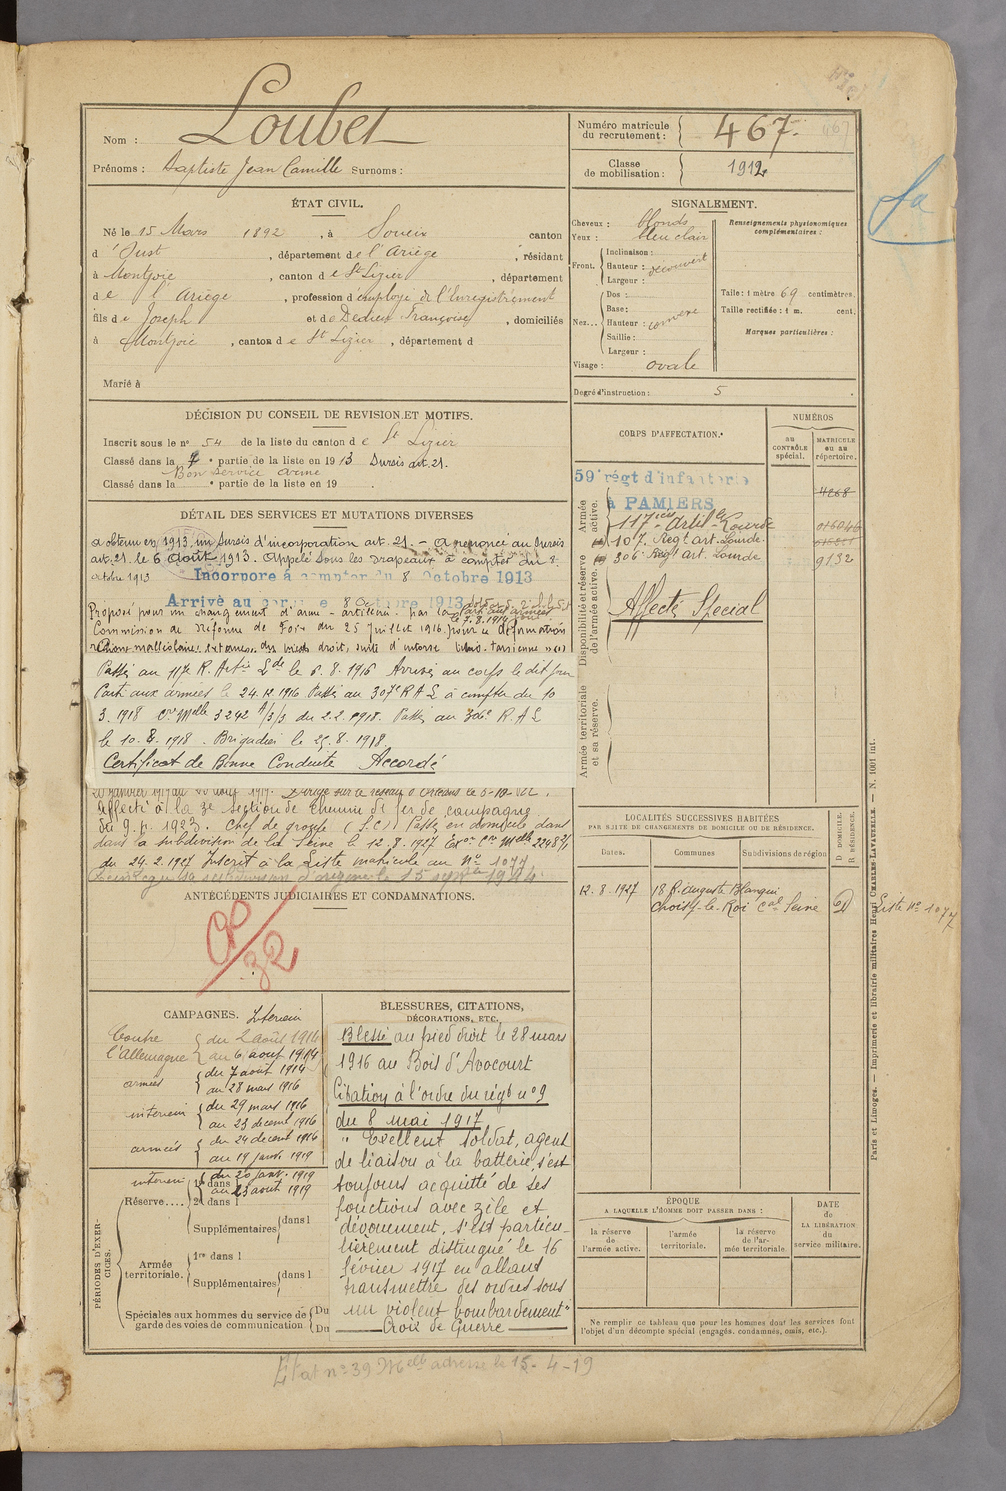 Nom : Loubet
Prénoms : Baptiste Jean Camille Surnoms :
Numéro matricule du recrutement : 467.
Classe de mobilisation : 1912
ÉTAT CIVIL.
Né le 15 Mars 1892, à Soueix canton
d'Oust, département de l'Ariège, résidant
à Montjoie, canton de St Lizier, département
de l'Ariège, profession d'employé de l'Enregistrement
fils de Joseph et de Dedieu Françoise, domiciliés
à Montjoie, canton de St Lizier, département d
Marié à
SIGNALEMENT.
Cheveux : blonds
Yeux : bleu clair
Front. Inclinaison :
Hauteur : découvert
Largeur :
Nez... Dos :
Base :
Hauteur : convexe
Saillie :
Largeur :
Visage : ovale
Renseignements physionomiques complémentaires :
Taille : 1 mètre 69 centimètres.
Taille rectifiée : 1 m. cent.
Marques particulières :
Degré d'instruction : 5
DÉCISION DU CONSEIL DE REVISION ET MOTIFS.
Inscrit sous le n° 54 de la liste du canton de St Lizier
Classé dans la ° partie de la liste en 1913 Sursis art. 21.
Bon service armé
Classé dans la ° partie de la liste en 19 .
DÉTAIL DES SERVICES ET MUTATIONS DIVERSES
a obtenu en 1913 un sursis d'incorporation art. 21. - a renoncé au sursis
art. 21 le 6 août 1913. Appelé sous les drapeaux à compter du 8
octobre 1913
Incorporé à compter du 8 Octobre 1913
Arrivé au corps le 8 Octobre 1913
Parti aux armées
le 7.8.1914
Proposé pour un changement d'arme - artillerie - par la
Commission de réforme de Foix du 25 Juillet 1916 pour
malléolaire externe du pied droit, suite d'entorse
Passé au 117e R. Artie Lde le 6.8.1916 Arrivé au corps le dit jour
Parti aux armées le 24.12.1916 Passé au 307e R A L à compter du 10
3.1918 Cre Melle 3242 1/3/3 du 2.2.1918. Passé au 306e R.A L
le 10.8.1918. Brigadier le 25.8.1918
Certificat de Bonne Conduite Accordé
Affecté à la 3e section de chemin de fer de campagne
Chef de groupe (S.C.) Passé en domicile dans
dans la subdivision de la Seine le 12.8.1927 Exon Cre Melle 2248
du 24.2.1927 Inscrit à la Liste matricule au No 1077
sa subdivision d'origine le 15
ANTÉCÉDENTS JUDICIAIRES ET CONDAMNATIONS.
32
CORPS D'AFFECTATION.
NUMÉROS
au CONTRÔLE spécial.
MATRICULE ou au répertoire.
Armée active.
59e régt d'infanterie
à PAMIERS
4268
117e Artil. Lourde
Disponibilité et réserve de l'armée active.
107. Regt art. Lourde.
306e Regt art. Lourde 9132
Affecté Spécial
Armée territoriale et sa réserve.
LOCALITÉS SUCCESSIVES HABITÉES
PAR SUITE DE CHANGEMENTS DE DOMICILE OU DE RÉSIDENCE.
Dates.
Communes
Subdivisions de région
D DOMICILE.
R RÉSIDENCE.
12.8.1927 18 R. Auguste Blanqui
Choisy-le-Roi Cal Seine D
Liste No 1077
CAMPAGNES.
Contre l'Allemagne
Intérieur
du 2 août 1914
au 6 août 1914
armées
du 7 août 1914
au 28 mars 1916
intérieur
du 29 mars 1916
au 23 décemb 1916
armées
du 24 décemb 1916
au 19 janv. 1919
intérieur
du 20 janv. 1919
au 23 août 1919
PÉRIODES D'EXERCICES.
Réserve.... 1re dans l
2e dans l
Supplémentaires dans l
Armée territoriale. 1re dans l
Supplémentaires dans l
Spéciales aux hommes du service de garde des voies de communication. Du
Du
BLESSURES, CITATIONS,
DÉCORATIONS, ETC.
Blessé au pied droit le 28 mars
1916 au Bois d'Avocourt
Citation à l'ordre du régt no 9
du 8 mai 1917
" Exellent soldat, agent
de liaison à la batterie, s'est
toujours acquitté de ses
fonctions avec zèle et
dévouement, s'est particu-
lièrement distingué le 16
février 1917 en allant
transmettre des ordres sous
un violent bombardement"
Croix de Guerre
ÉPOQUE
A LAQUELLE L'HOMME DOIT PASSER DANS :
la réserve de l'armée active.
l'armée territoriale.
la réserve de l'armée territoriale.
DATE de LA LIBÉRATION du service militaire.
Ne remplir ce tableau que pour les hommes dont les services font
l'objet d'un décompte spécial (engagés, condamnés, omis, etc.).
Paris et Limoges. — Imprimerie et librairie militaires Henri CHARLES-LAVAUZELLE. — N. 1001 int.
État no 39 Melle adressé le 15-4-19